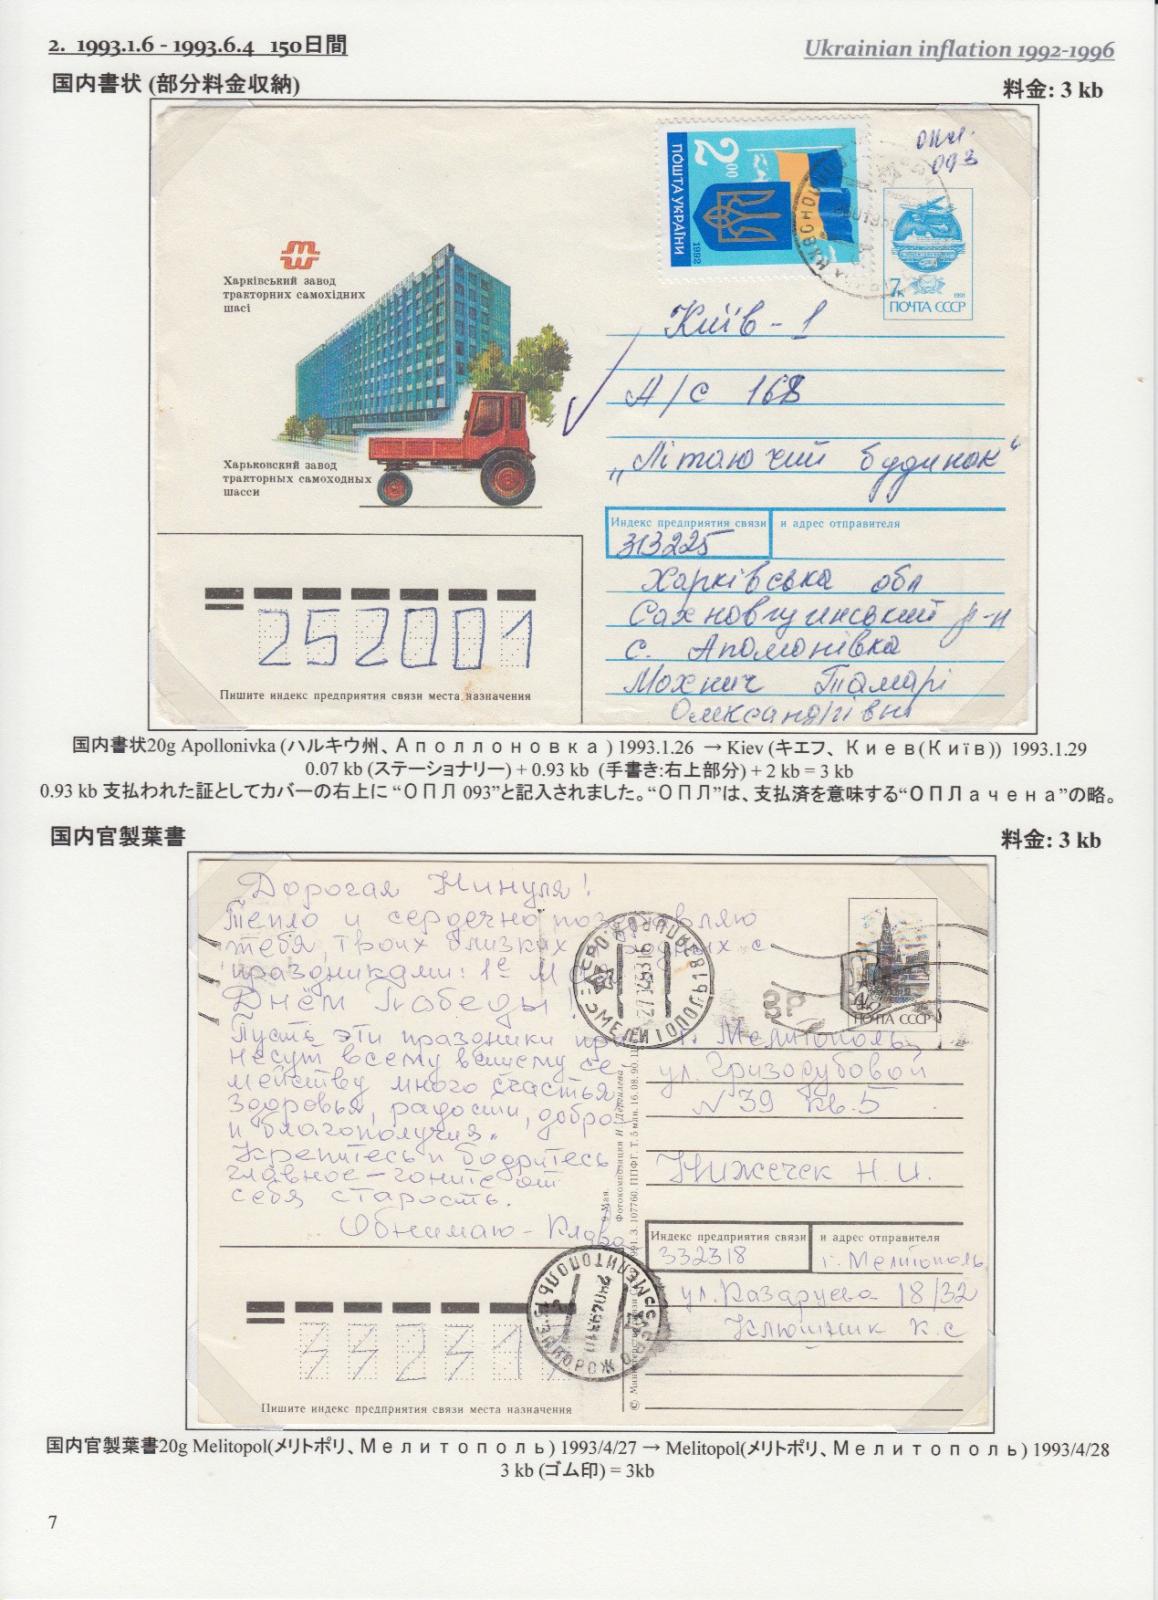 2. 1993.1.6 - 1993.6.4 150日間
Ukrainian inflation 1992-1996
国内書状 (部分料金収納)
料金: 3 kb
опл.
093
2 00
ПОШТА УКРАЇНИ
1992
7к
1991
ПОЧТА СССР
Харківський завод
тракторних самохідних
шасі
Харьковский завод
тракторных самоходных
шасси
Київ - 1
А/С 168
„Літаючий будинок“
Индекс предприятия связи
и адрес отправителя
313225
Харківська обл
Сахновщинський р-н
с. Аполонівка
Мохнич Тамарі
Олександрівні
252001
Пишите индекс предприятия связи места назначения
国内書状20g Apollonivka (ハルキウ州、Аполлоновка) 1993.1.26 → Kiev (キエフ、Киев(Київ)) 1993.1.29
0.07 kb (ステーショナリー) + 0.93 kb (手書き:右上部分) + 2 kb = 3 kb
0.93 kb 支払われた証としてカバーの右上に “ОПЛ 093”と記入されました。“ОПЛ”は、支払済を意味する“ОПЛачена”の略。
国内官製葉書
料金: 3 kb
Дорогая Нинуля!
Тепло и сердечно поздравляю
тебя, твоих близких родных с
праздниками: 1е Мая
Днём Победы!
Пусть эти праздники при
несут всему вашему се
мейству много счастья
здоровья, радости, добра
и благополучия.
Крепитесь и бодритесь
главное - гоните от
себя старость.
Обнимаю - Клава
3Р
ПОЧТА СССР
г. Мелитополь
ул. Гризодубовой
N 39 кв. 5
Нижечек Н. И.
Индекс предприятия связи
и адрес отправителя
332318
г. Мелитополь
ул. Казарцева 18/32
Ключник К. С
МЕЛИТОПОЛЬ
Пишите индекс предприятия связи места назначения
国内官製葉書20g Melitopol(メリトポリ、Мелитополь) 1993/4/27 → Melitopol(メリトポリ、Мелитополь) 1993/4/28
3 kb (ゴム印) = 3kb
7